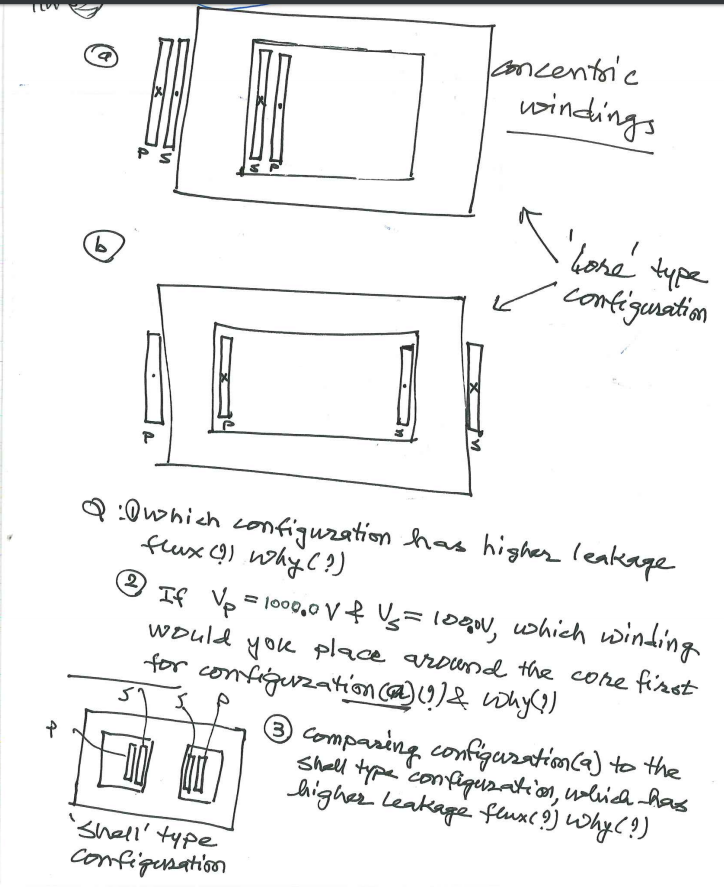 a
concentric
windings
x
.
x
.
P S
S P
b
'Core' type
configuration
.
x
.
x
P
P
S
S
Q: 1 which configuration has higher leakage
flux(?) why(?)
2 If Vp = 1000.0 V & Vs = 100.0V, which winding
would you place around the core first
for configuration(a)(?) & why(?)
S S P
P
'Shell' type
configuration
3 Comparing configuration(a) to the
shell type configuration, which has
higher leakage flux(?) why(?)